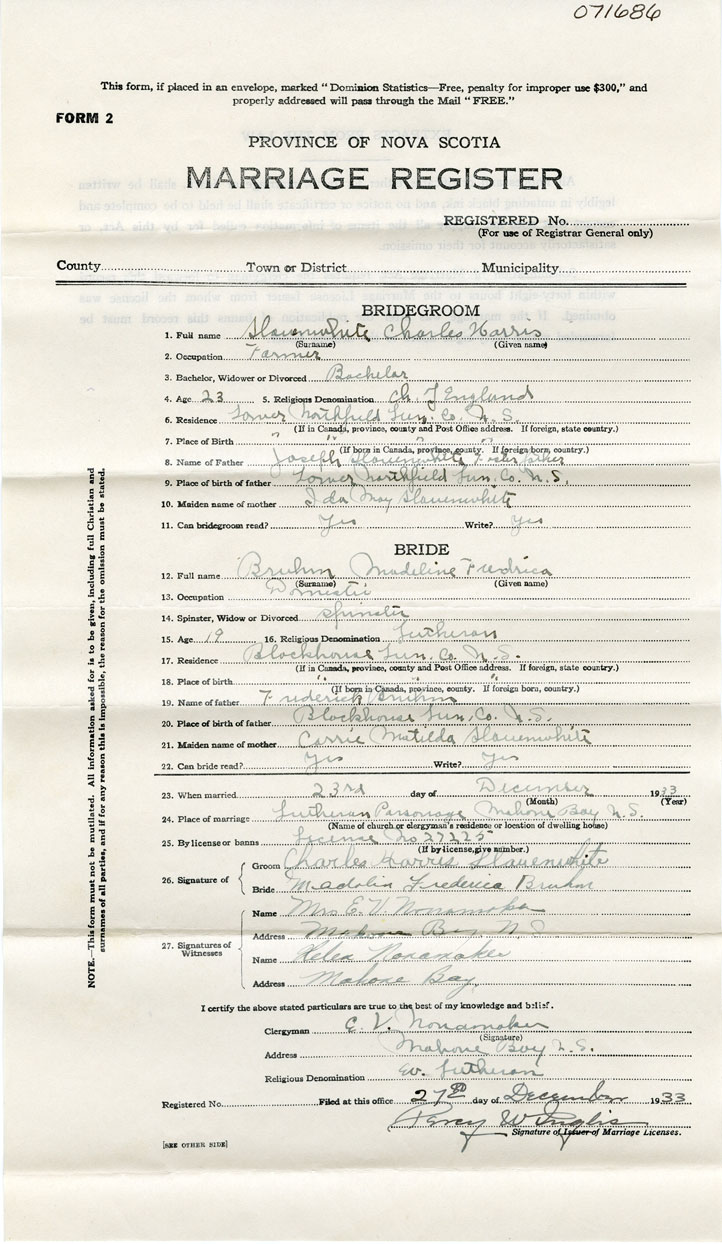 071686
This form, if placed in an envelope, marked "Dominion Statistics—Free, penalty for improper use $300," and
properly addressed will pass through the Mail "FREE."
FORM 2
PROVINCE OF NOVA SCOTIA
MARRIAGE REGISTER
REGISTERED No.
(For use of Registrar General only)
County Town or District Municipality
BRIDEGROOM
1. Full name Slauenwhite Charles Harris
(Surname) (Given name)
2. Occupation Farmer
3. Bachelor, Widower or Divorced Bachelor
4. Age 23 5. Religious Denomination Ch. of England
6. Residence Lower Northfield Lun. Co. N.S.
(If in Canada, province, county and Post Office address. If foreign, state country.)
7. Place of Birth " " " "
(If born in Canada, province, county. If foreign born, country.)
8. Name of Father Joseph Slauenwhite Foster father
9. Place of birth of father Lower Northfield Lun. Co. N.S.
10. Maiden name of mother Ida May Slauenwhite
11. Can bridegroom read? Yes Write? Yes
BRIDE
12. Full name Bruhm Madeline Fredrica
(Surname) (Given name)
13. Occupation
14. Spinster, Widow or Divorced Spinster
15. Age 19 16. Religious Denomination Lutheran
17. Residence Blockhouse Lun. Co. N.S.
(If in Canada, province, county and Post Office address. If foreign, state country.)
18. Place of birth " "
(If born in Canada, province, county. If foreign born, country.)
19. Name of father Frederick Bruhm
20. Place of birth of father Blockhouse Lun. Co. N.S.
21. Maiden name of mother Carrie Matilda Slauenwhite
22. Can bride read? Yes Write? Yes
23. When married 23rd day of December 1933
(Month) (Year)
24. Place of marriage Lutheran Parsonage Mahone Bay N.S.
(Name of church or clergyman's residence or location of dwelling house)
25. By license or banns License No 27225
(If by license, give number.)
26. Signature of Groom Charles Harris Slauenwhite
Bride Frederica Bruhm
27. Signatures of Witnesses
Name Mrs E. V. Nonamaker
Address Mahone Bay N S
Name Helen Nonamaker
Address Mahone Bay
I certify the above stated particulars are true to the best of my knowledge and belief.
Clergyman E. V. Nonamaker
(Signature)
Address Mahone Bay N.S.
Religious Denomination Ev. Lutheran
Registered No. Filed at this office 27th day of December 1933
Percy W Inglis
Signature of Issuer of Marriage Licenses.
[SEE OTHER SIDE]
NOTE.—This form must not be mutilated. All information asked for is to be given, including full Christian and
surnames of all parties, and if for any reason this is impossible, the reason for the omission must be stated.